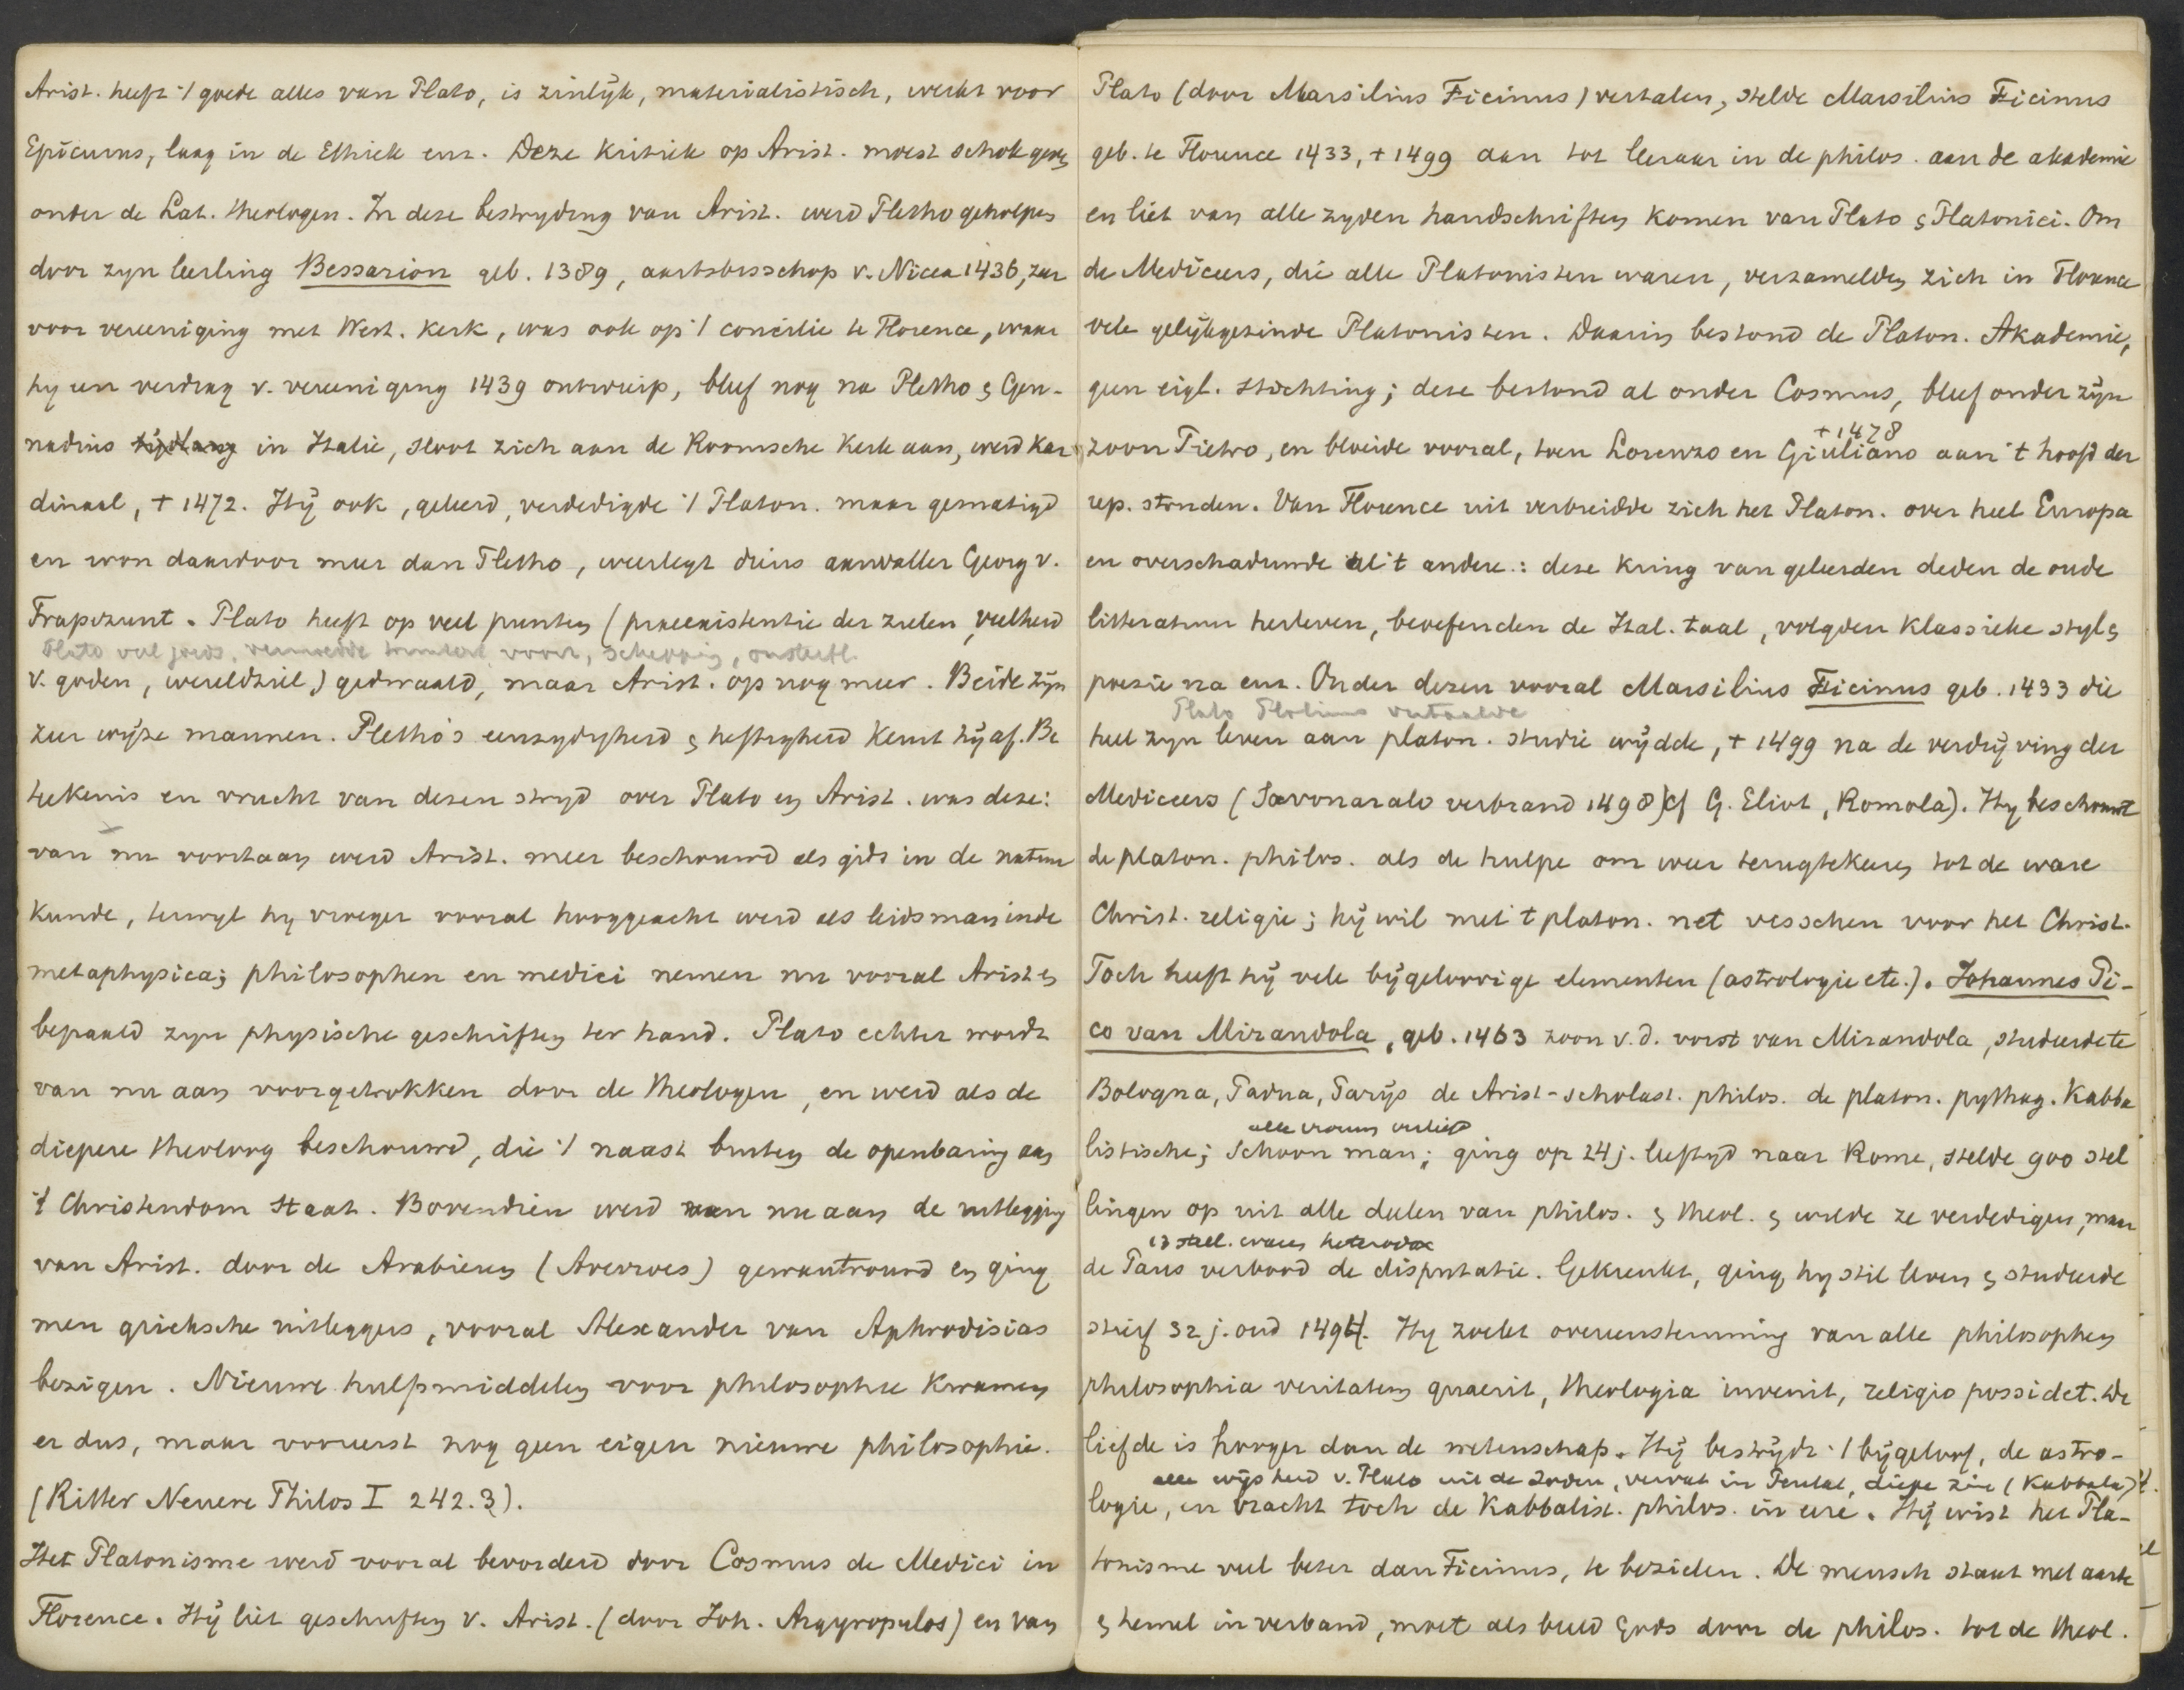 Arist. heeft 't goede alles van Plato, is zinlijk, materialistisch, werkt voor
Epicurus, laag in de Ethiek enz. Deze kritiek op Arist. moest schok geven
onder de Lat. theologen. In deze bestryding van Arist. werd Pletho geholpen
door zyn leerling Bessarion geb. 1389, aartsbisschop v. Nicea 1436, zeer
voor vereeniging met West. Kerk, was ook op 't concilie te Florence, waar
hy een verdrag v. vereeniging 1439 ontwierp, bleef nog na Pletho & Gen-
nadius tijdlang in Italie, sloot zich aan de Roomsche Kerk aan, werd kar
dinaal, + 1472. Hij ook, geleerd, verdedigde 't Platon. maar gematigd
en won daardoor meer dan Pletho, weerlegt diens aanvaller Georg v.
Trapezunt. Plato heeft op veel punten (praeexistentie der zielen, veelheid
Plato veel joods, voor, schepping, onsterfl.
v. goden, wereldziel) gedwaald, maar Arist. op nog meer. Beide zijn
zeer wijze mannen. Pletho's eenzydigheid & heftigheid keurt hij af. Be
teekenis en vrucht van dezen stryd over Plato en Arist. was deze:
van nu voortaan werd Arist. meer beschouwd als gids in de natuur
kunde, terwyl hy vroeger vooral hooggeacht werd als leidsman in de
metaphysica; philosophen en medici nemen nu vooral Arist. &
bepaald zyn physische geschriften ter hand. Plato echter wordt
van nu aan voorgetrokken door de theologen, en werd als de
diepere theoloog beschouwd, die 't naast buiten de openbaring aan
't Christendom staat. Bovendien werd van nu aan de uitlegging
van Arist. door de Arabieren (Averroes) gewantrouwd en ging
men grieksche uitleggers, vooral Alexander van Aphrodisias
bezigen. Nieuwe hulpmiddelen voor philosophie kwamen
er dus, maar vooreerst nog geen eigen nieuwe philosophie.
(Ritter Neuere Philos I 242.3).
Het Platonisme werd vooral bevorderd door Cosmus de Medici in
Florence. Hij liet geschriften v. Arist. (door Joh. Argyropulos) en van
Plato (door Marsilius Ficinus) vertalen, stelde Marsilius Ficinus
geb. te Florence 1433, + 1499 aan tot leeraar in de philos. aan de akademie
en liet van alle zyden handschriften komen van Plato & Platonici. Om
de Mediceers, die alle Platonisten waren, verzamelden zich in Florence
vele gelijkgezinde Platonisten. Daarin bestond de Platon. Akademie,
geen eigl. stichting; deze bestond al onder Cosmus, bleef onder zijn
+ 1478
zoon Pietro, en bloeide vooral, toen Lorenzo en Giuliano aan 't hoofd der
rep. stonden. Van Florence uit verbreidde zich het Platon. over heel Europa
en overschaduwde al 't andere: deze kring van geleerden deden de oude
litteratuur herleven, beoefenden de Ital. taal, volgden klassieke styl &
poezie na enz. Onder dezen vooral Marsilius Ficinus geb. 1433 die
Plato Plotinus vertaalde
heel zyn leven aan platon. studie wijdde, + 1499 na de verdrijving der
Mediceers (Savonarola verbrand 1498) (cf G. Eliot, Romola). Hy beschouwt
de platon. philos. als de hulpe om weer terugtekeeren tot de ware
Christ. religie; hij wil met 't platon. net visschen voor het Christ.
Toch heeft hij vele bijgeloovige elementen (astrologie etc.). Johannes Pi-
co van Mirandola, geb. 1463 zoon v.d. vorst van Mirandola, studeerde te
Bologna, Padua, Parijs de Arist-scholast. philos. de platon. pythag. Kabba
alle vrouwen verliefd
listische; schoon man; ging op 24 j. leeftijd naar Rome, stelde 900 stel
lingen op uit alle deelen van philos. & theol. & wilde ze verdedigen, maar
13 stell. waren heterodox
de Paus verbood de disputatie. Gekrenkt, ging hy stil leven & studeerde
stierf 32 j. oud 1494. Hy zoekt overeenstemming van alle philosophen
philosophia veritatem quaerit, theologia invenit, religio possidet. De
liefde is hooger dan de wetenschap. Hij bestrijdt 't bijgeloof, de astro-
alle wijsheid v. Plato uit de Joden, vervat in Pentat, diepe zin (Kabbala)
logie, en bracht toch de Kabbalist. philos. in eere. Hij wist het Pla-
tonisme veel beter dan Ficinus, te bezielen. De mensch staat met aarde
& hemel in verband, moet als beeld Gods door de philos. tot de theol.